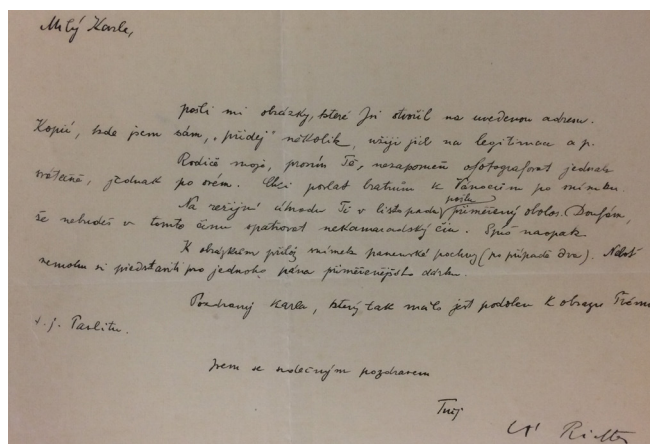 Milý Karle,
pošli mi obrázky, které Jsi stvořil na uvedenou adresu.
Kopií, kde jsem sám, přidej několik, užiji jich na legitimaci a p.
Rodiče moje, prosím Tě, nezapomeň ofotografovat jednak
svátečně, jednak po orém. Chci poslat bratrům k Vánocům po snímku.
Na režijní úhradu Ti v listopadu pošlu přiměřený obolos. Doufám,
že nebudeš v tomto činu spatřovat nekamarádský čin. Spíš naopak.
K obrázkům přilož snímek panenské pochvy (po případě dva). Neboť
nemohu si představiti pro jednoho pána přiměřenějšího dárku.
Pozdravuj Karla, který tak málo jest podoben k obrazu
t. j. Pavlitu.
Jsem se srdečným pozdravem
Tvůj
Richter